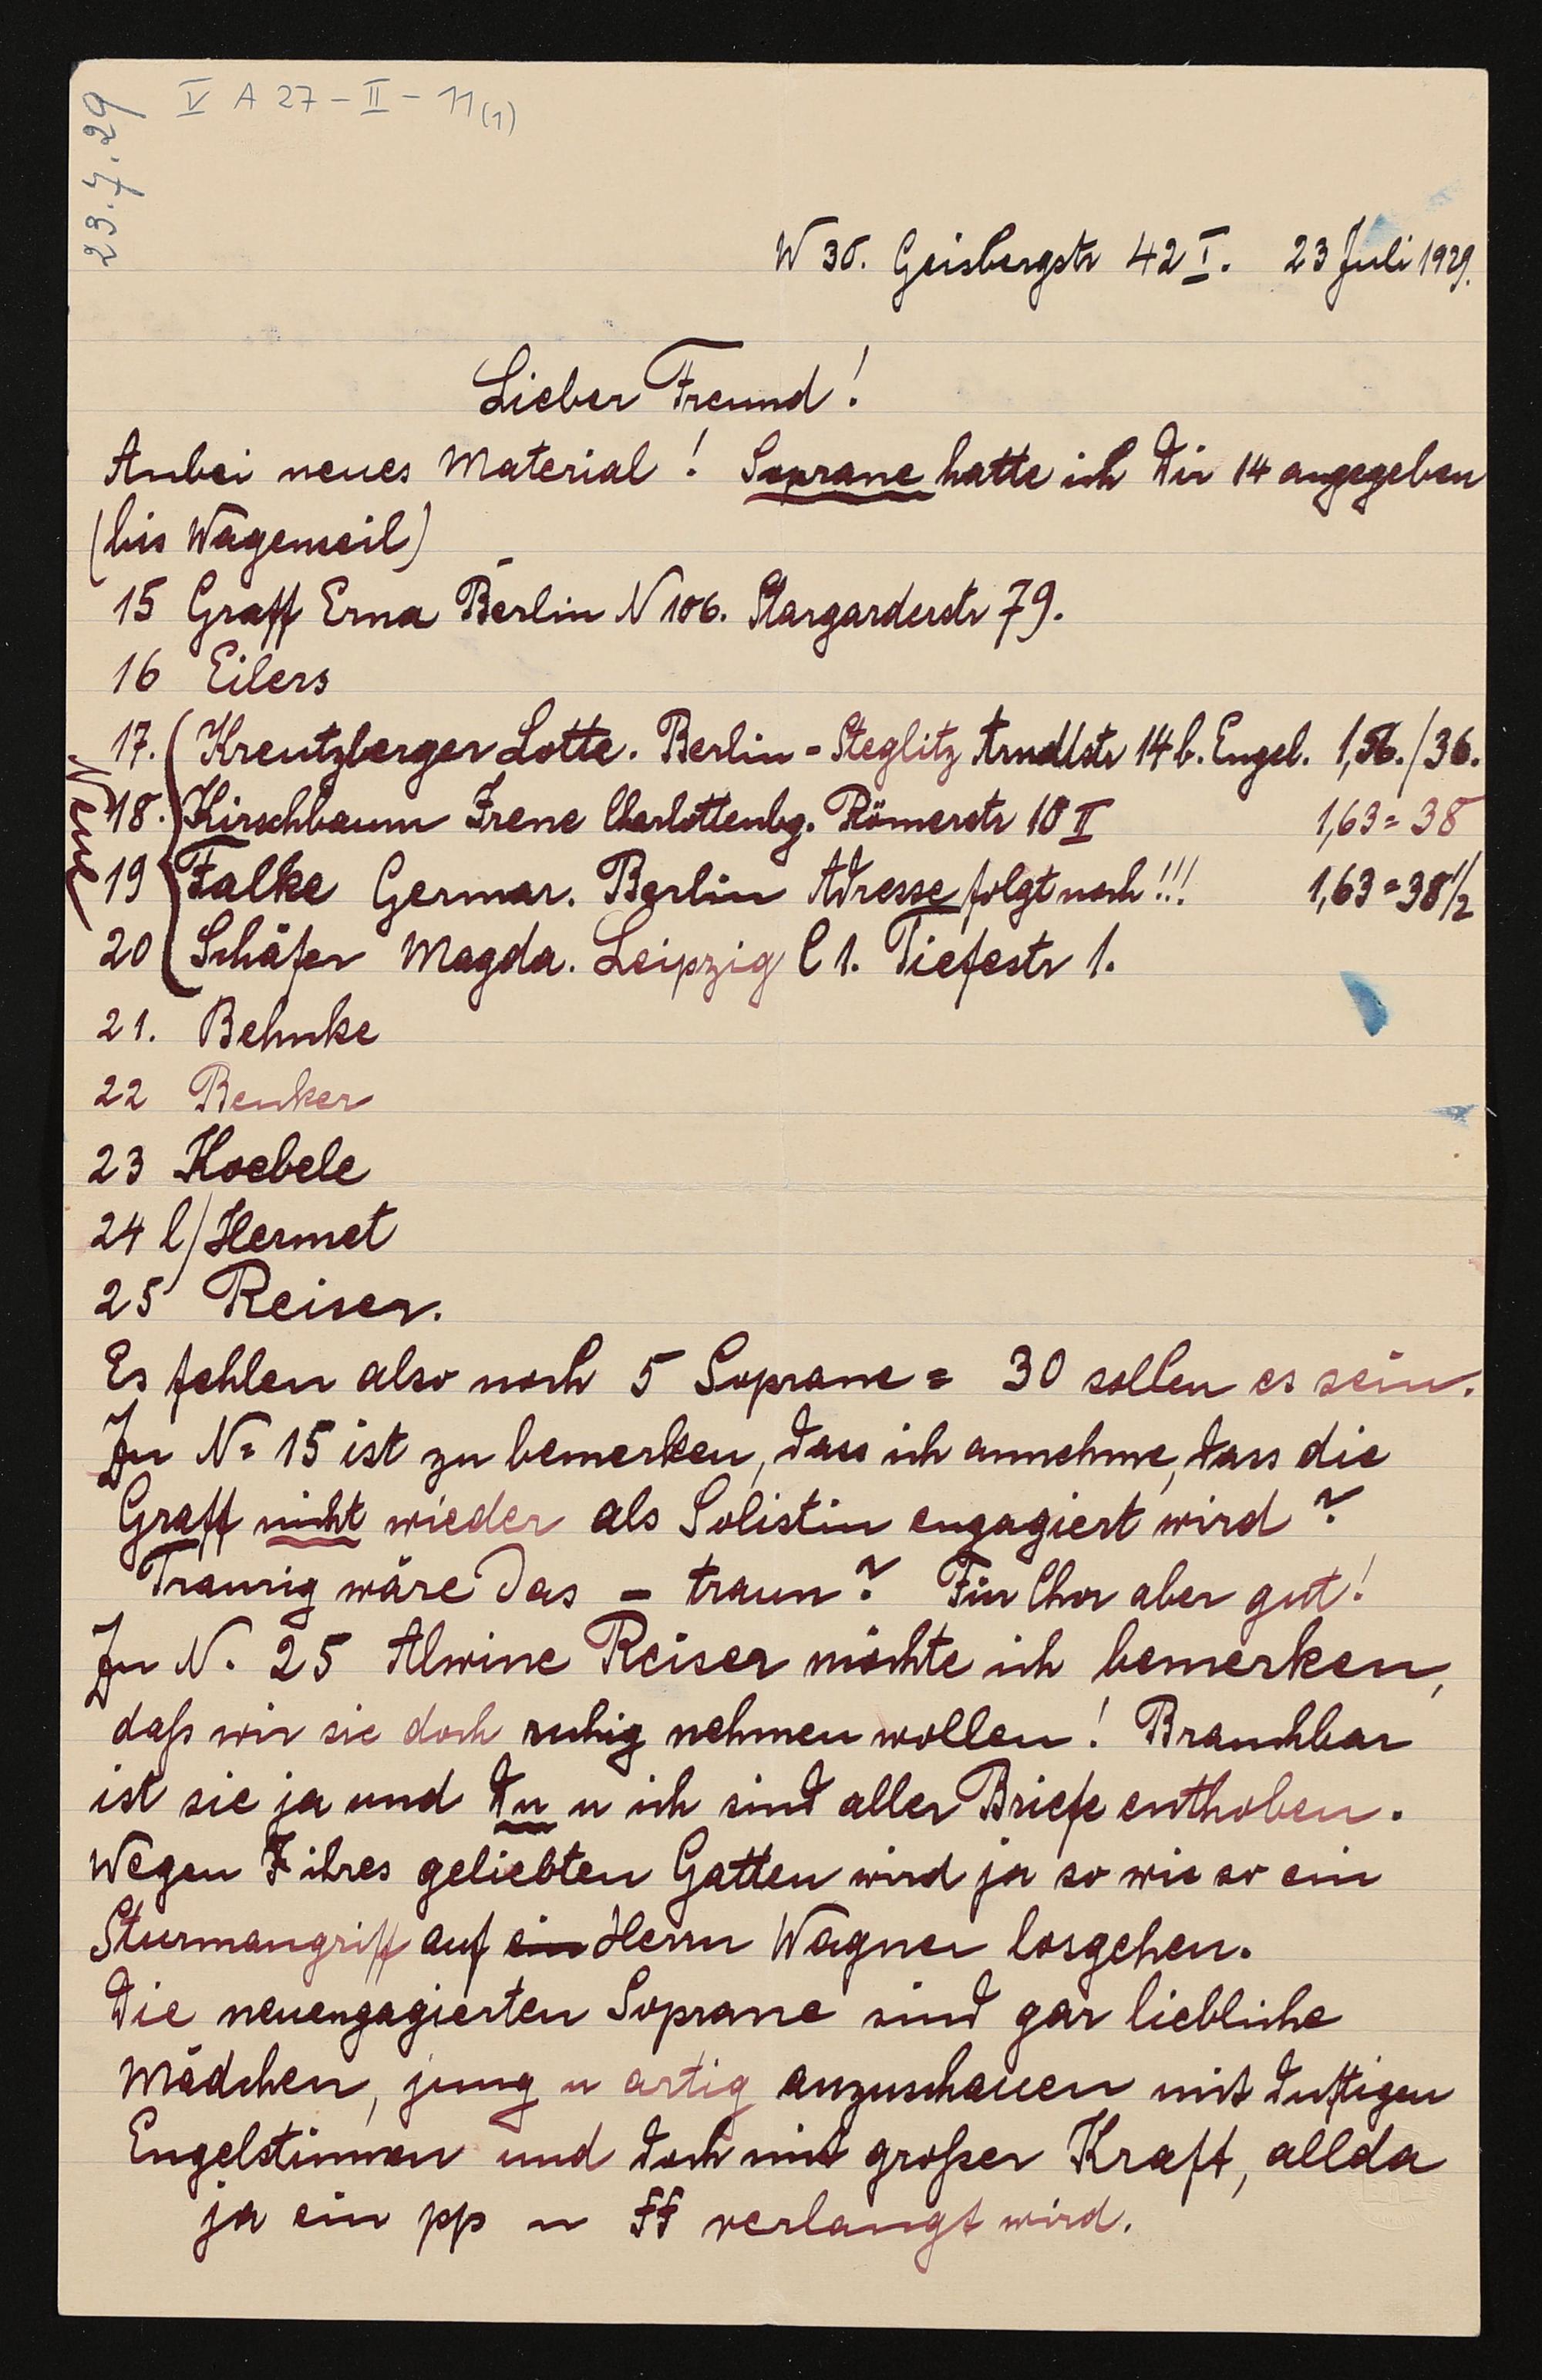 V A 27 - II - 11 (1)
23.7.29
W 30. Geisbergstr 42 I. 23 Juli 1929.
Lieber Freund!
Anbei neues Material! Soprane hatte ich Dir 14 angegeben
(bis Wagenseil)
15 Graff Erna Berlin N 106. Stargarderstr 79.
16 Eilers
17. Kreutzberger Lotte. Berlin = Steglitz Arndtstr 14 b. Engel. 1,56./36.
18. Kirschbaum Irene Charlottenbg. Römerstr 10 II 1,63 = 38
Neue
19 Falke Germar. Berlin Adresse folgt noch!!! 1,63 = 38 1/2
20 Schäfer Magda. Leipzig C 1. Tiefestr 1.
21. Behnke
22 Benker
23 Koebele
24 l/Hermet
25 Reiser.
Es fehlen also noch 5 Soprane = 30 sollen es sein.
Zu N= 15 ist zu bemerken, dass ich annehme, dass die
Graff nicht wieder als Solistin engagiert wird?
Traurig wäre das – traun? Für Chor aber gut!
Zu N. 25 Alwine Reiser möchte ich bemerken,
daß wir sie doch ruhig nehmen wollen! Brauchbar
ist sie ja und Du u ich sind aller Briefe enthoben.
Wegen ihres geliebten Gatten wird ja so wie so ein
Sturmangriff auf ein Herrn Wagner losgehen.
Die neuengagierten Soprane sind gar liebliche
Mädchen, jung u artig anzuschauen mit duftigen
Engelstimmen und doch mit großer Kraft, allda
ja ein pp u ff verlangt wird.